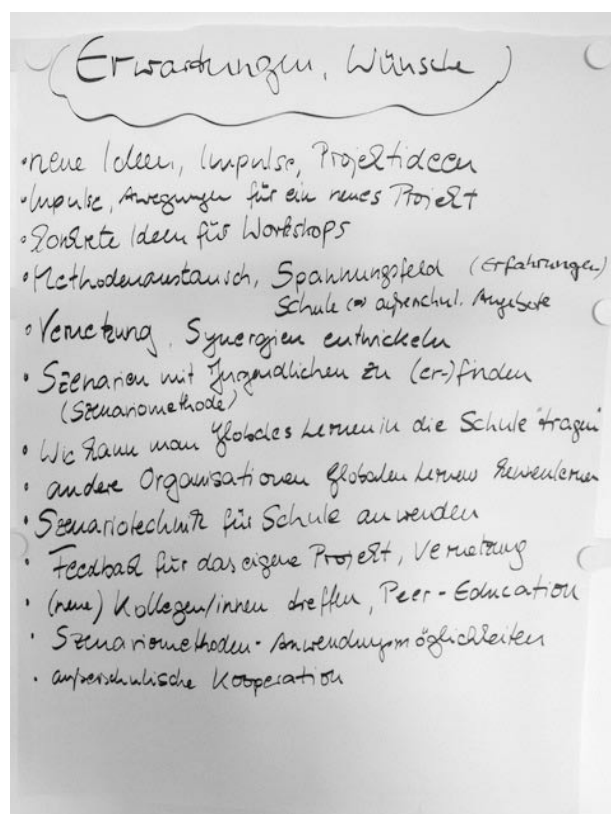 Erwartungen, Wünsche
• neue Ideen, Impulse, Projektideen
• Impulse, Anregungen für ein neues Projekt
• konkrete Ideen für Workshops
• Methodenaustausch, Spannungsfeld (Erfahrungen)
Schule ↔ außerschul. Angebote
• Vernetzung, Synergien entwickeln
• Szenarien mit Jugendlichen zu (er-)finden
(Szenariomethode)
• Wie kann man Globales Lernen in die Schule "tragen"
• andere Organisationen Globalen Lernens kennenlernen
• Szenariotechnik für Schule anwenden
• Feedback für das eigene Projekt, Vernetzung
• (neue) Kollegen/innen treffen, Peer-Education
• Szenariomethoden-Anwendungsmöglichkeiten
• außerschulische Kooperation